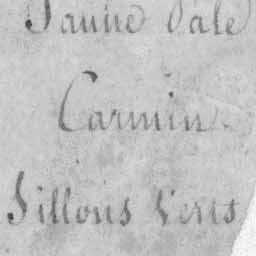 Jaune Pale
Carmin
Sillons Verts